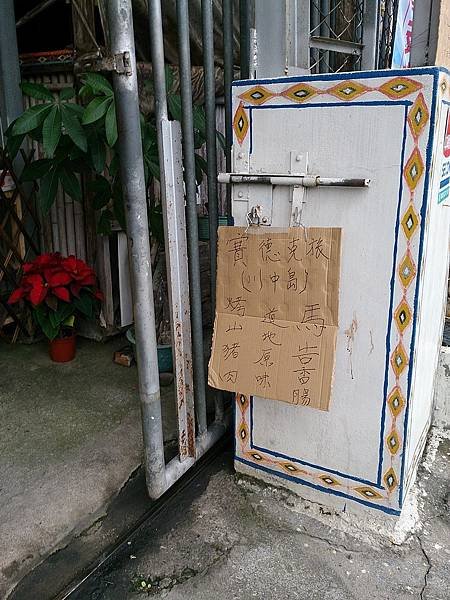 賽德克族
(川中島)
馬告香腸
道地原味
烤山豬肉